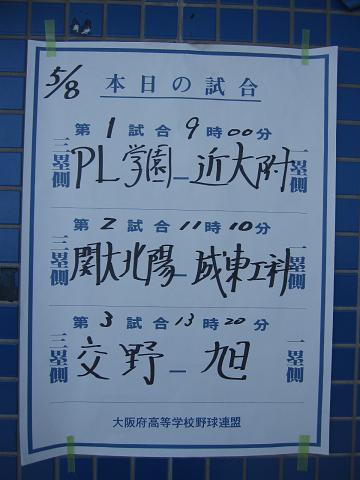 5/8 本日の試合
第1試合 9時00分
三塁側 PL学園 ― 近大附 一塁側
第2試合 11時10分
三塁側 関大北陽 ― 城東工科 一塁側
第3試合 13時20分
三塁側 交野 ― 旭 一塁側
大阪府高等学校野球連盟